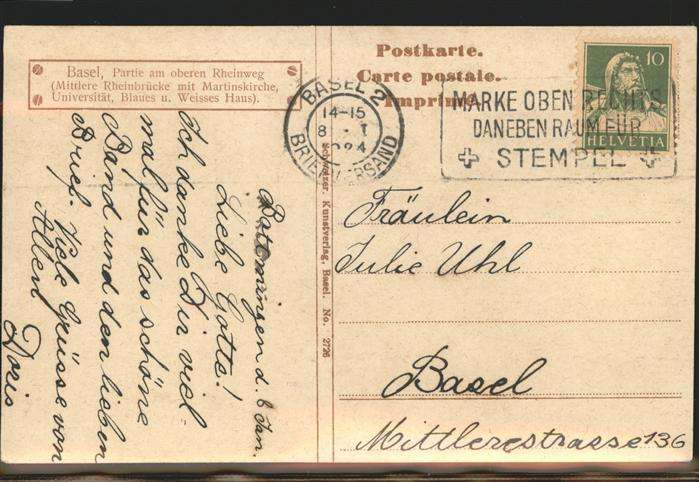 Basel, Partie am oberen Rheinweg
(Mittlere Rheinbrücke mit Martinskirche,
Universität, Blaues u. Weisses Haus).
Postkarte.
Carte postale.
Imprimé
BASEL 2
14-15
8 - I
1924
BRIEFVERSAND
MARKE OBEN RECHTS
DANEBEN RAUM FÜR
STEMPEL
10
HELVETIA
Schweizer. Kunstverlag, Basel. No. 2726
Bottmingen d. 6 Jan.
Liebe Gotte!
Ich danke Dir viel-
mal für das schöne
Band und den lieben
Brief. Viele Grüsse von
Allen!
Doris
Fräulein
Julie Uhl
Basel
Mittlerestrasse 136